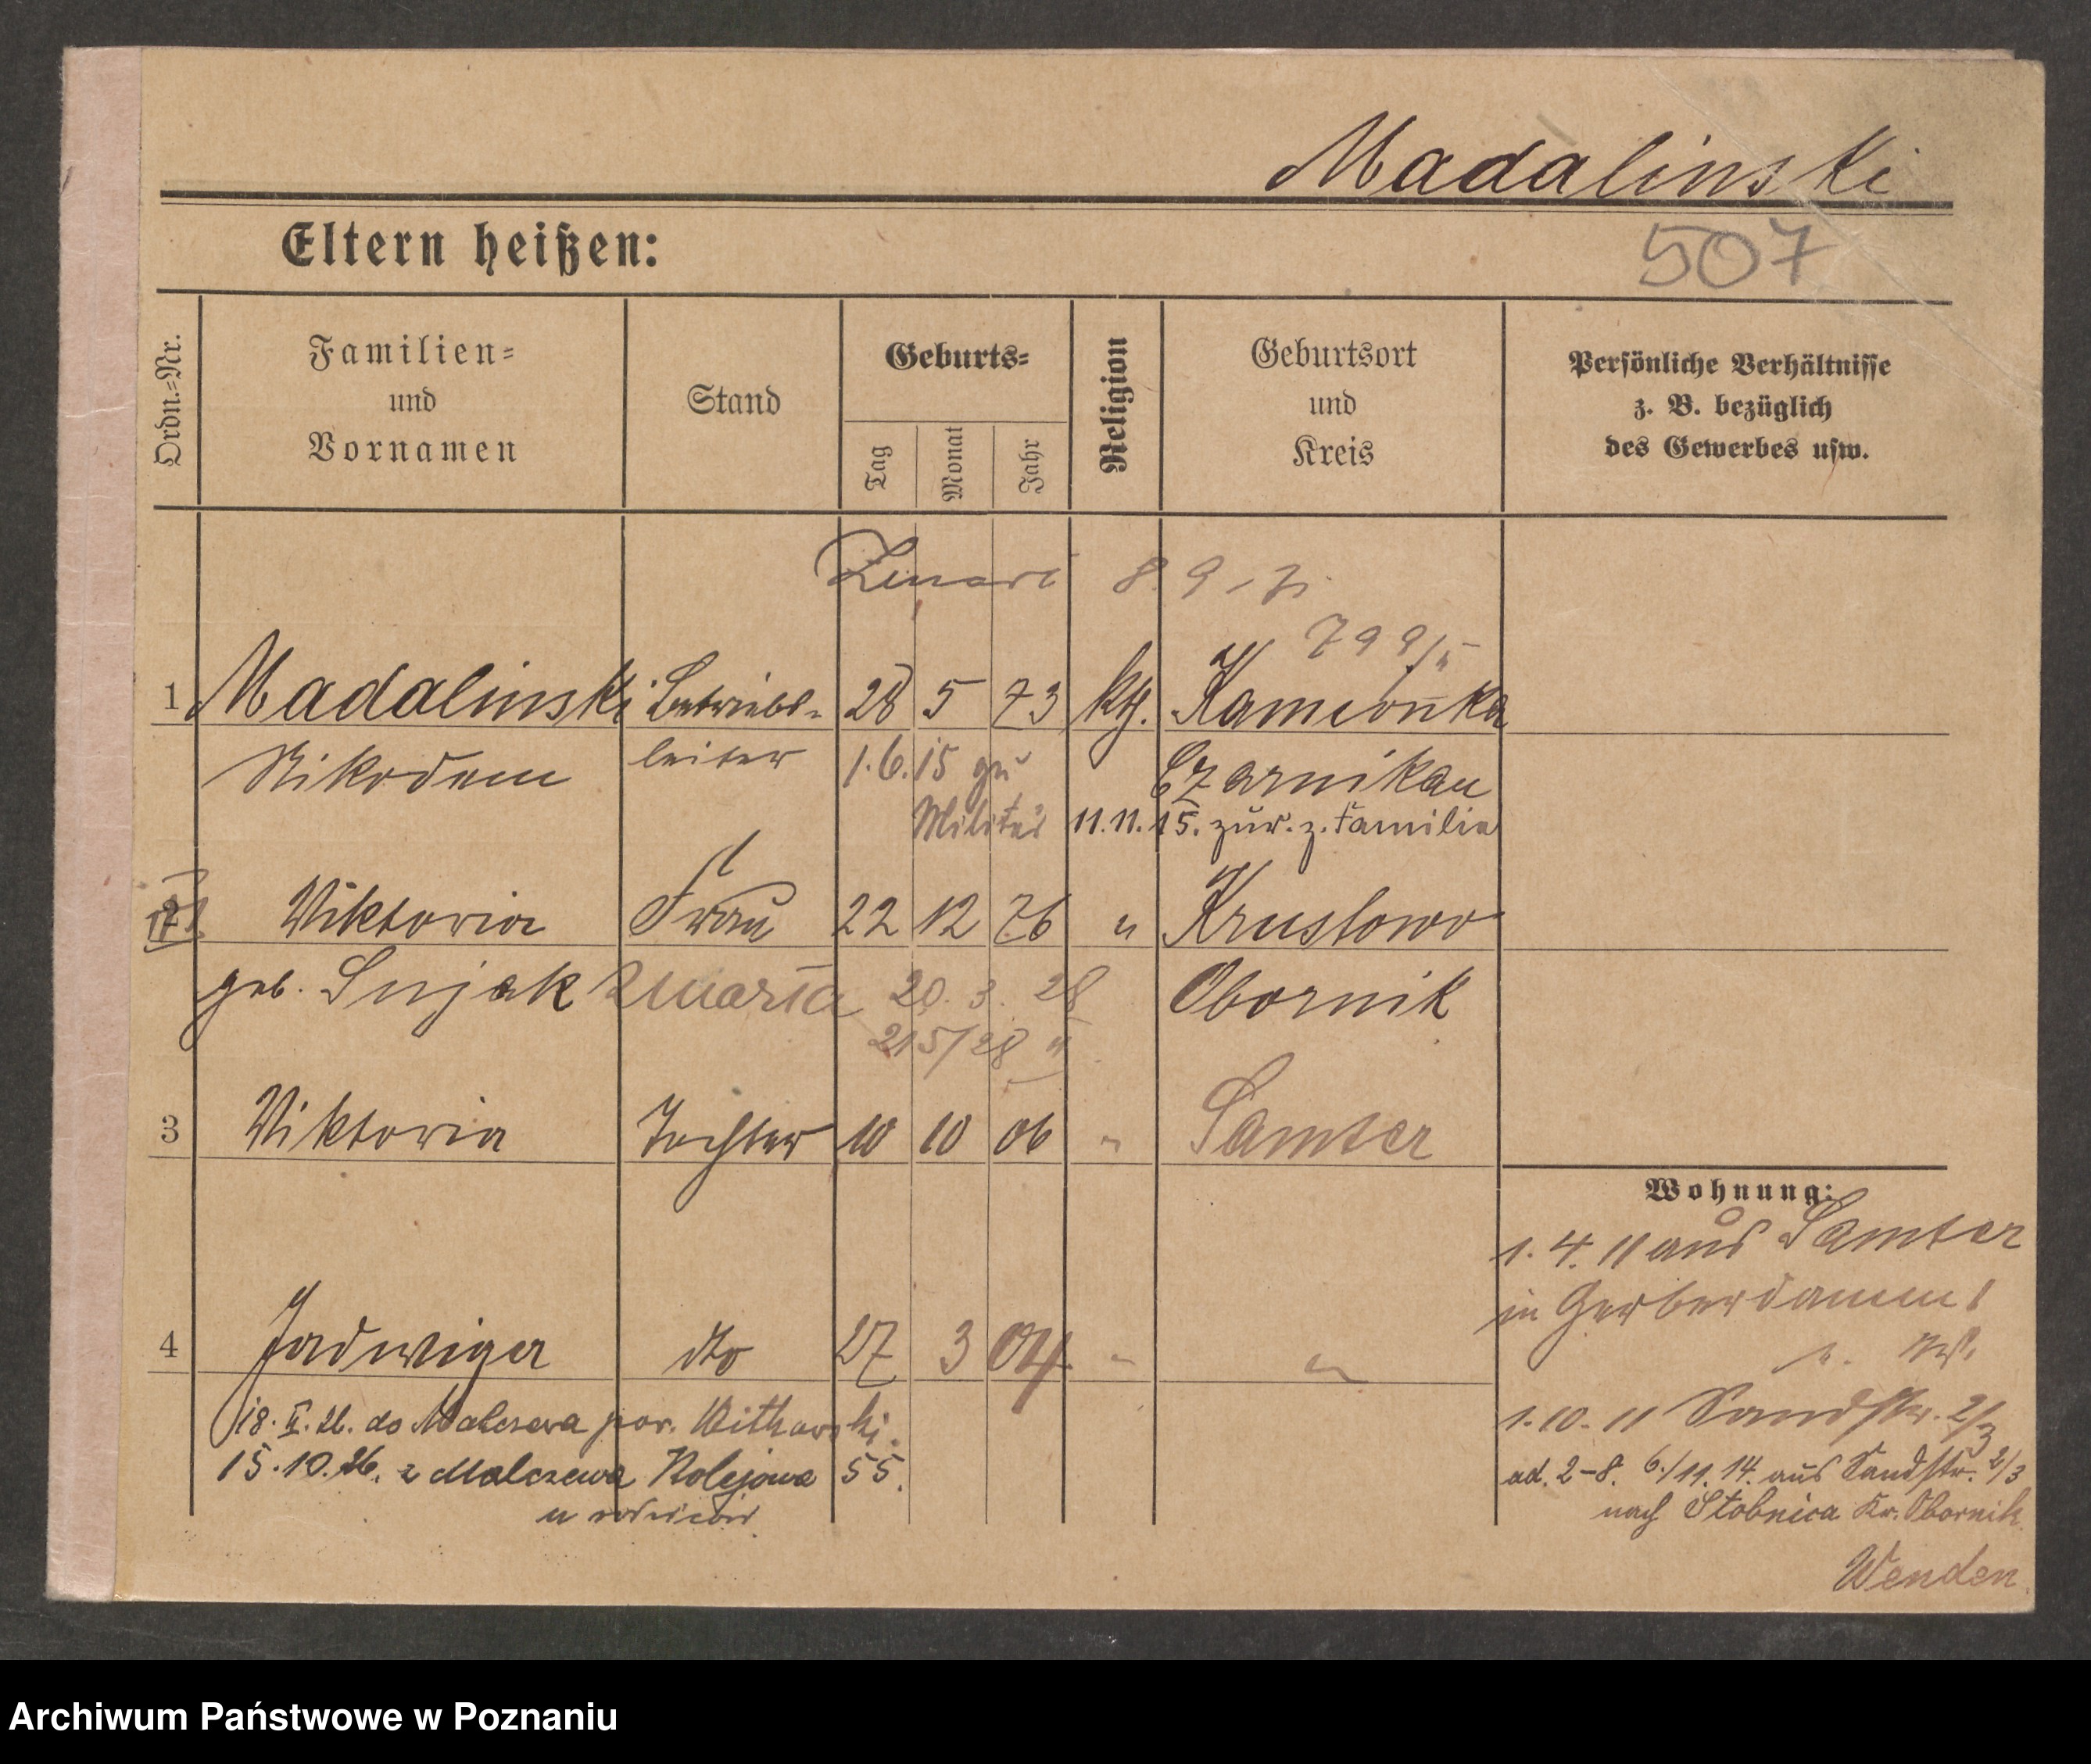 Madalinski
Eltern heißen:
507
Ordn.=Nr.
Familien=
und
Vornamen
Stand
Geburts=
Tag
Monat
Jahr
Religion
Geburtsort
und
Kreis
Persönliche Verhältnisse
z. B. bezüglich
des Gewerbes usw.
Zmarł 8. 9
799/
1 Madalinski Betriebs- 28 5 73 kth. Kamionka
Nikodem leiter 1.6.15 zu Czarnikau
Militär 11.11.15. zur. z. Familie
2 Viktoria Frau 22 12 76 " Kruslowo
geb. Sujak Zmarła 20. 3. 28 Obornik
215/28
3 Viktoria Tochter 10 10 06 " Samter
4 Jadwiga dto 27 3 04. " "
18. II. 26. do Malczewa por. Withowski.
15.10.26. z Malczewa Kolejowa 55.
u rodziców
Wohnung:
1. 4. 11 aus Samter
in Gerberdamm 1
1. 10. 11 Sandstr. 2/3
ad. 2-8. 6./11. 14. aus Sandstr. 2/3
nach Stobnica Kr. Obornik.
Wenden
Archiwum Państwowe w Poznaniu